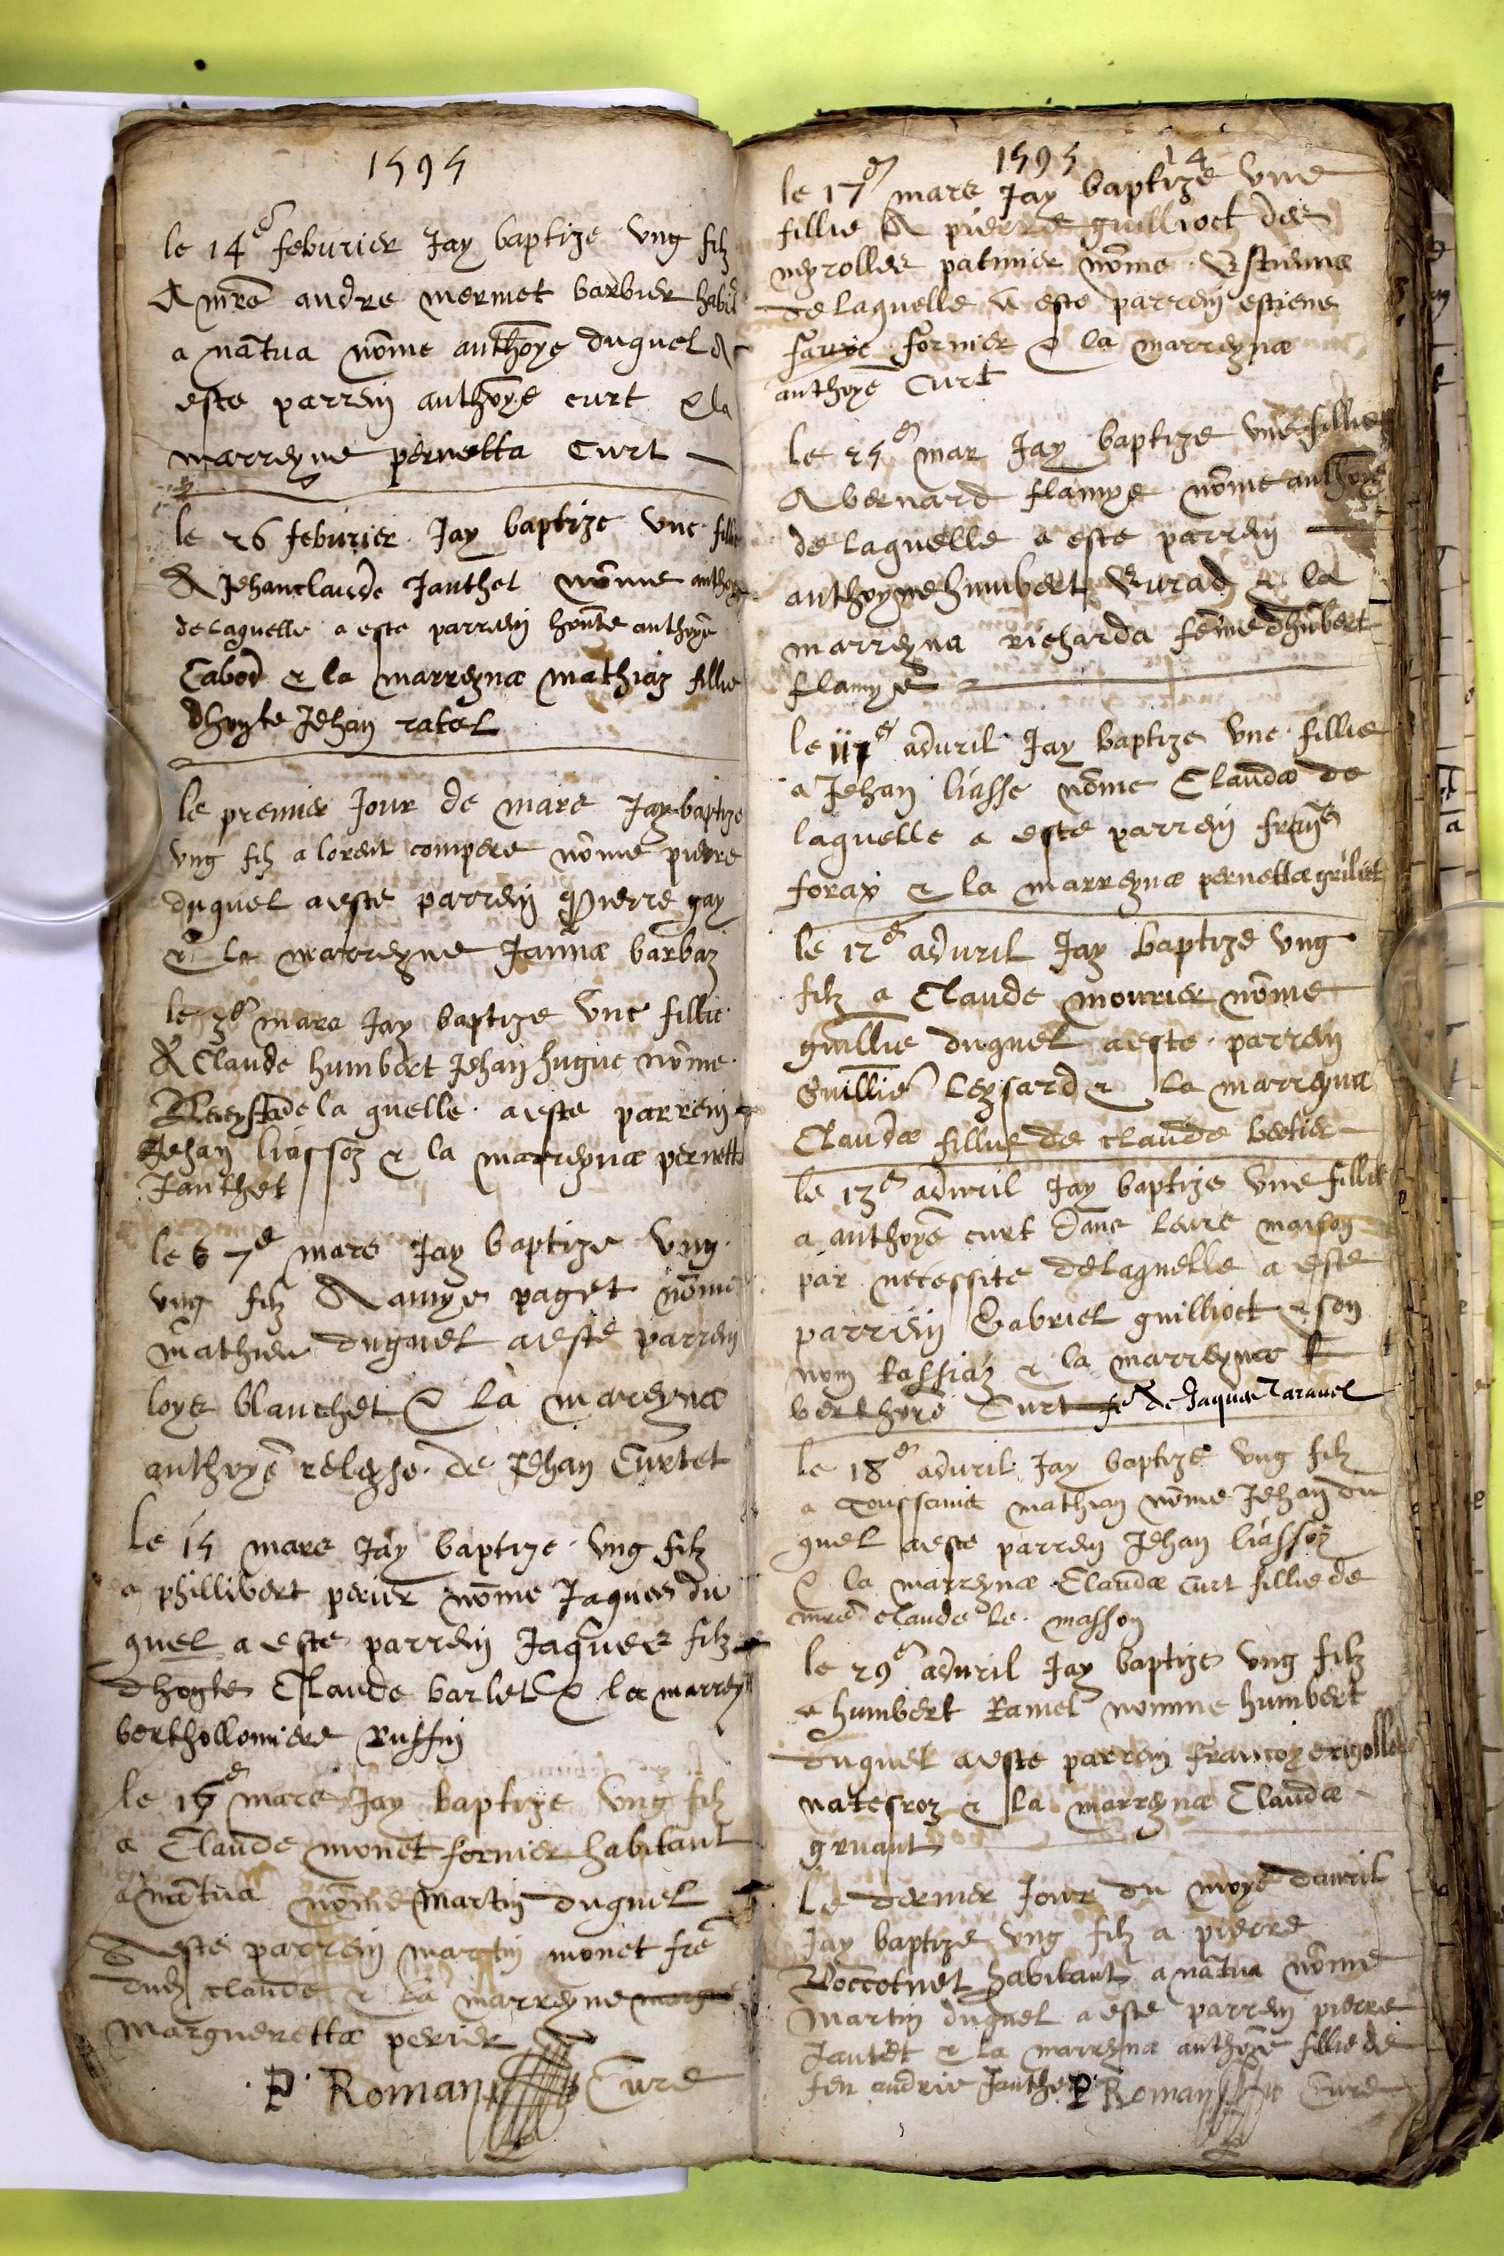 1595
le 14e feburier Jay baptize ung filz
A mre andre mermet barbier habit
a nãtua nõme anthoyẽ duquel A
este parrein anthoyẽ curt & la
marreyne pernetta Curt
le 26 feburier Jay baptize une fillie
A Jehanclaude Janthet nõme anthoye
de laquelle a este parrein honẽte anthoyẽ
Cabod & la marreynæ mathiaz fillie
dhonẽte Jehan ratel
le premier Jour de mars Jay baptize
ung filz a lorent compere nõme pierre
duquel a este parrein Pierre gay
& la marreyne Janna barbaz
le 3e mars Jay baptize une fillie
A Claude humbert Jehan hugue nõme
de la quelle a este parrein
Jehan liassoz & la marreynæ pernetta
Janthet
le 6 7e mars Jay baptize ung
ung filz A amye paget nõme
mathieu duquel a este parrein
loys blanchet & la mareynæ
anthoyẽ relexse de Jehan Curtet
Le 15 mars Jay baptize ung filz
a phillibert perier nõme Jaques du
quel a este parrein Jaques filz
dhogte Claude barlet & la marreyn
berthollomiere Ruffin
le 16e mars Jay baptize ung filz
a Claude monet fornier habitant
a nãtua nõme Martin duquel
A este parrein martin monet frẽ
dud claude & la marreyne margue
marguerettæ perier
P Roman Curé
1595 14
le 17e mars Jay baptize une
fillie A pierre guillioct des
neyrolles patinier nõme Estiena
de laquelle a este parrein estiene
favre fornier & la marreynæ
anthoyẽ Curt
le 25e mar Jay baptize une fillie
A bernard flamye nõme anthoyẽ
de laquelle a este parrein
anthoyne humbert Burad & la
marreyna richarda fẽme dhũbert
flamye
le 11e aduril Jay baptize une fillie
a Jehan liasse nõme Claudæ de
laquelle a este parrein frãcois
forax & la marreynæ pernettæ grilliet
le 12e aduril Jay baptize ung
filz a Claude mourier nõme
guillie duquel a este parrein
Guillie leysard & la marreyna
Claudæ fillie de claude bertier
le 13e aduril Jay baptize une fillie
a anthoyẽ curt dans leurs maison
par necessite de laquelle a este
parrein Gabriel guillioct & son
nom tassiaz & la marreynæ
berthoyẽ Curt fẽ de Jaques Taravel
le 18e aduril Jay baptize ung filz
a Toussains mathian nõme Jehan du
quel a este parrein Jehan liassoz
& la marreynæ Claudæ curt fillie de
mre claude le masson
le 29e aduril Jay baptize ung filz
a humbert Ramel nomme humbert
duquel a este parrein francoys
& la marreynæ Claudæ
gruant
Le dernier Jour du moys dauril
Jay baptize ung filz a pierre
Boccotnet habitant a nãtua nõme
Martin duquel a este parrein pierre
Jantet & la marreyna anthoyẽ fillie de
feu andrie Janthet P Roman Curé